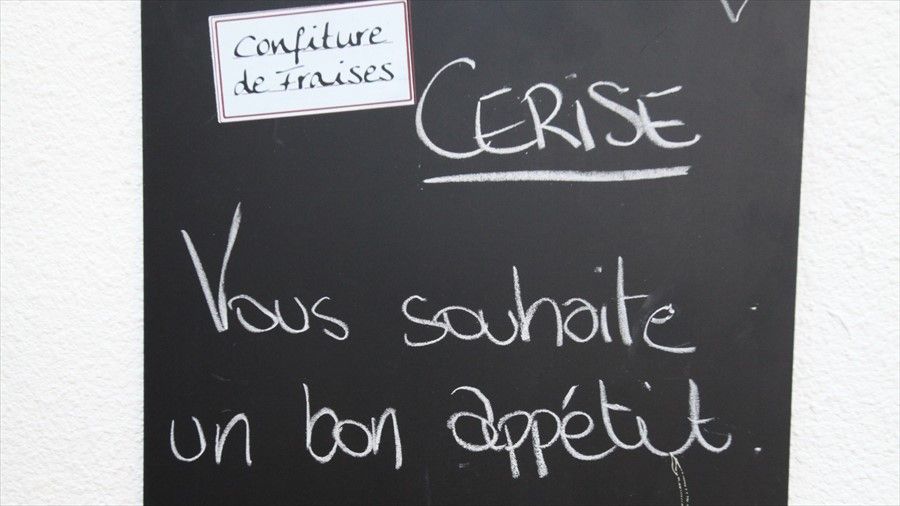 Confiture
de Fraises
CERISE
Vous souhaite
un bon appétit.